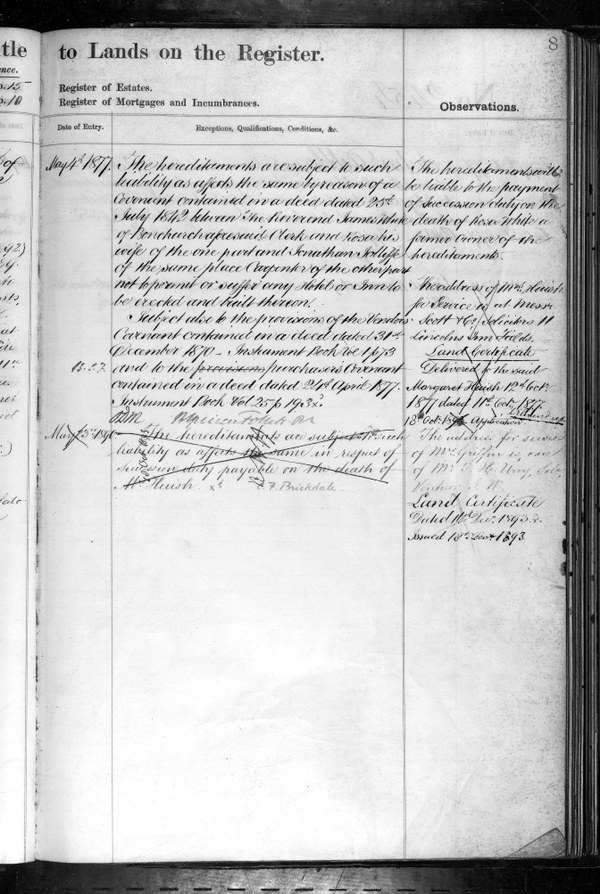 tle
to Lands on the Register.
8
nce.
Register of Estates.
Register of Mortgages and Incumbrances.
Observations.
Date of Entry.
Exceptions, Qualifications, Conditions, &c.
May 4th 1877.
The hereditaments are subject to such
liability as affects the same by reason of a
Covenant contained in a deed dated 25th
July 1842 between The Reverend James White
of Bonchurch aforesaid Clerk and Rosa his
wife of the one part and Jonathan Jolliffe
of the same place Carpenter of the other part
not to permit or suffer any Hotel or Inn to
be erected and built thereon.
Subject also to the provisions of the Vendors
Covenant contained in a deed dated 31st
December 1870 - Instrument Book Vol 1 p 673
and to the provisions purchasers Covenant
contained in a deed dated 24th April 1877.
Instrument Book Vol. 25 p 193
May 1896
The hereditaments are subject to such
liability as affects the same in respect of
succession duty payable on the death of
Mrs Huish.
F. Brickdale.
The hereditaments will
be liable to the payment
of Succession duty on the
death of Rosa White a
former Owner of the
hereditaments.
The address of Mrs Huish
for Service is at Messrs
Scott & Co Solicitors 11
Lincolns Inn Fields.
Land Certificate
Delivered to the said
Margaret Huish 12th Octr
1877 dated 11th Oct. 1877.
Application
The address for service
of Mrs Griffin is care
of Mr
Land Certificate
Dated 16th Dec. 1893.
Issued 18th 1893